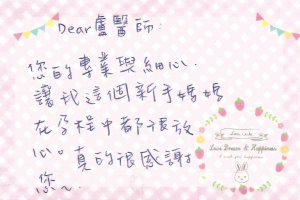 Dear盧醫師:
您的專業與細心.
讓我這個新手媽媽
在孕程中都很放
心。真的很感謝
您~
Love Dream & Happiness